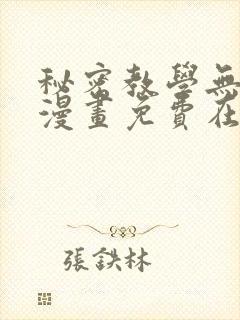 秘密教學無
漫畫免費在
張鉄林